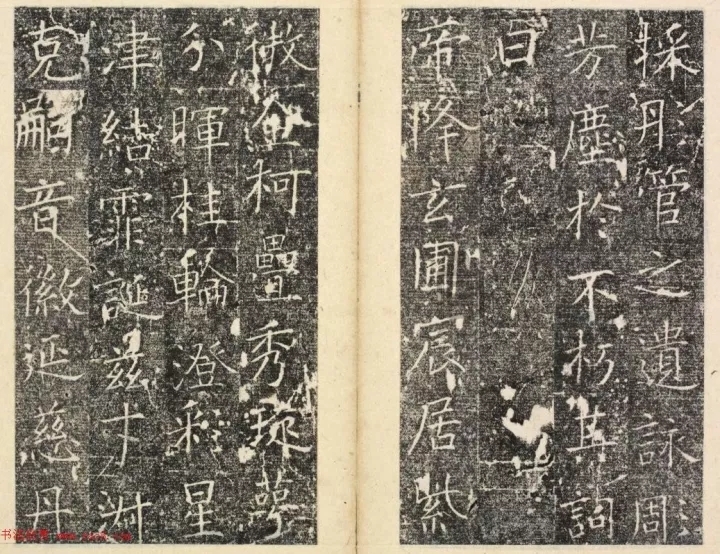 睬丹管之遺詠彫
芳塵於不朽其詞
曰
帝降玄圃宸居紫
微金柯疊秀琁萼
分暉桂輪澄彩星
津結霏誕茲才淑
克嗣音徽延慈丹